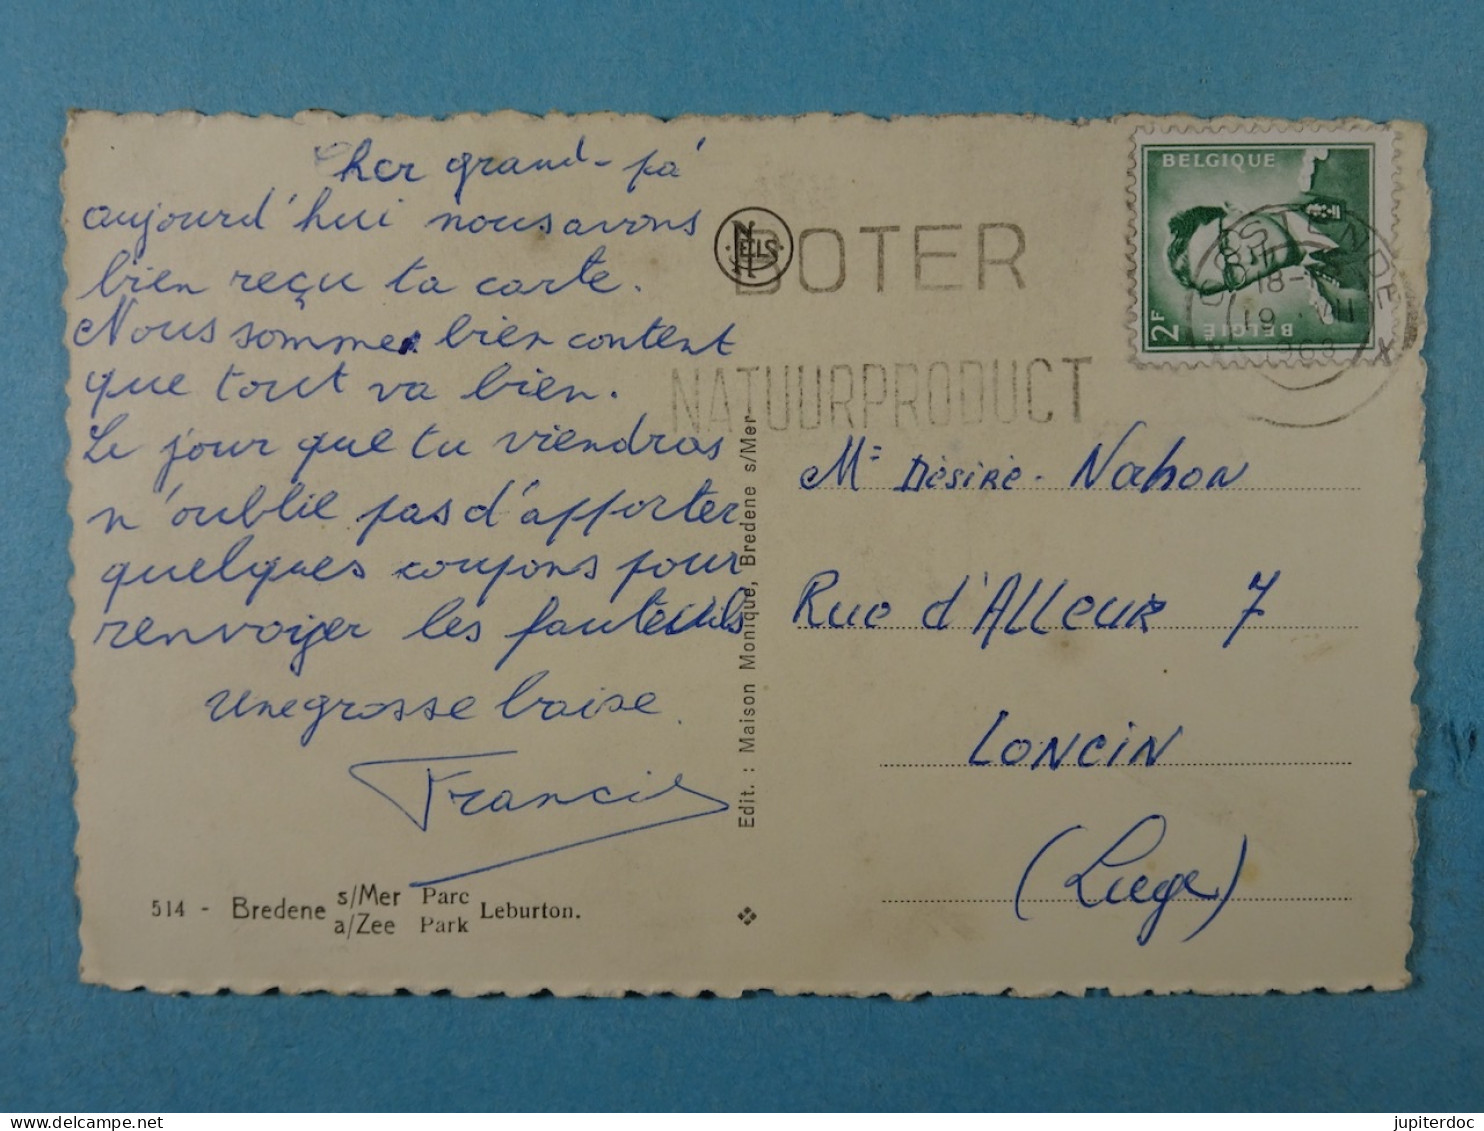 Cher grand-pá
aujourd'hui nous avons
bien reçu ta carte.
Nous sommes bien content
que tout va bien.
Le jour que tu viendras
n'oublie pas d'apporter
quelques coupons pour
renvoyer les fauteuils
une grosse baise.
Francis
514 - Bredene s/Mer Parc Leburton.
a/Zee Park
Edit. : Maison Monique, Bredene s/Mer
NELS
BOTER
NATUURPRODUCT
BELGIQUE
2F
BELGIË
OOSTENDE
18-
19 VII
1963
Mr Dèsirè - Nahon
Rue d'Alleur 7
Loncin
(Liege)
jupiterdoc